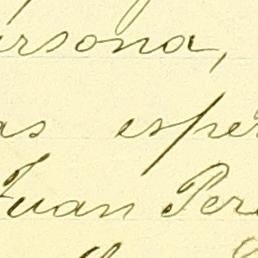 ersona,
as esper
Juan Per